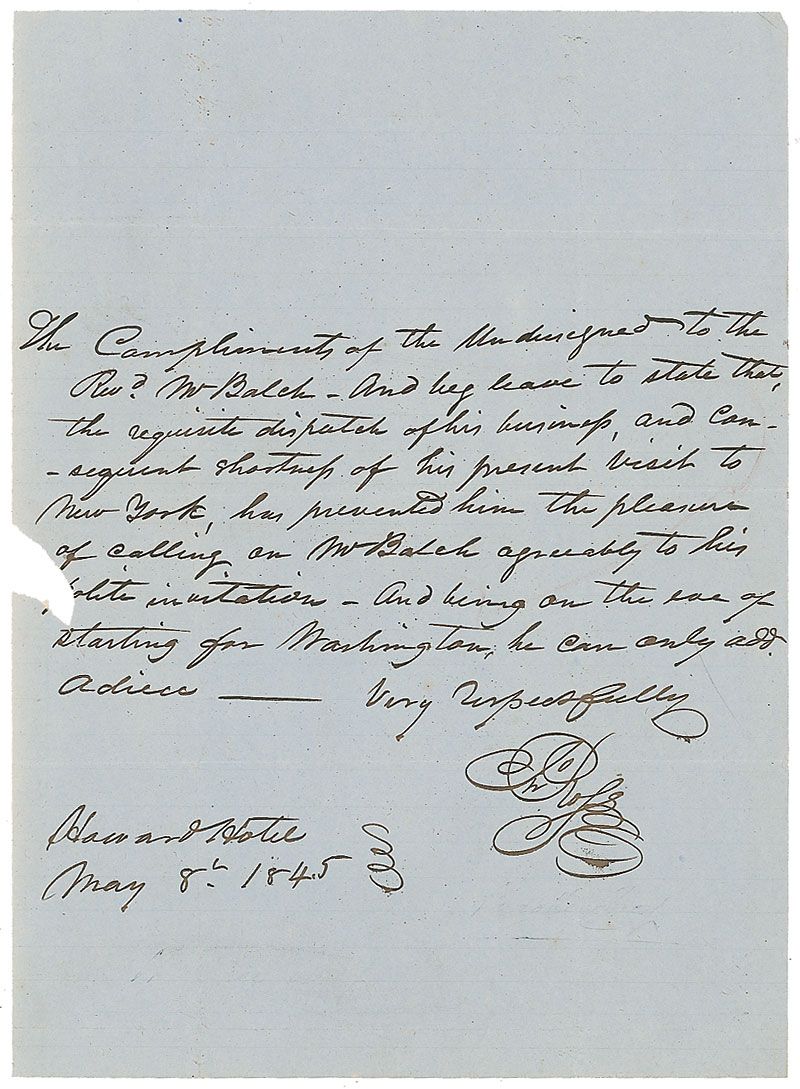 The Compliments of the Undersigned to the
Revd. Mr Balch - And beg leave to state that,
the requisite dispatch of his business, and con-
-sequent shortness of his present visit to
New York, has prevented him the pleasure
of calling on Mr Balch agreeably to his
polite invitation - And being on the eve of
starting for Washington, he can only add.
Adieu ——— Very respectfully
Jno Ross
Howard Hotel
May 8h. 1845